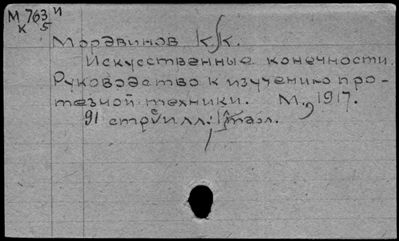 М 763 и
к 5
Мордвинов К. К.
Искусственные конечности.
Руководство к изучению про-
тезной техники. М., 1917.
91 стр. илл.; 1 табл.